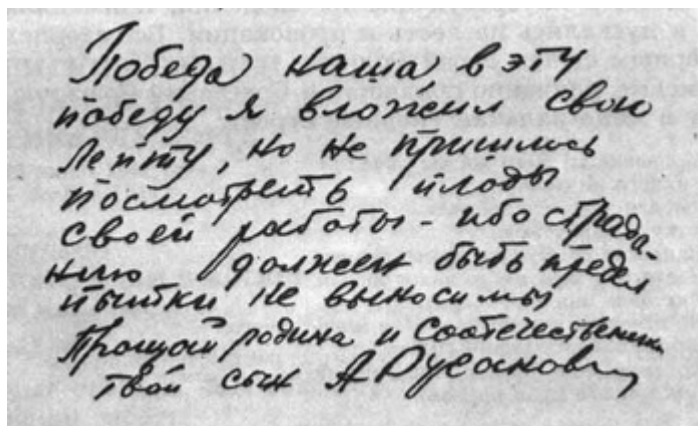 Победа наша в эту
победу я вложил свою
Лепту, но не пришлось
посмотреть плоды
своей работы - ибо страда-
нию должен быть предел
пытки не выносимы
Прощай родина и соотечественники
твой сын А Русанов